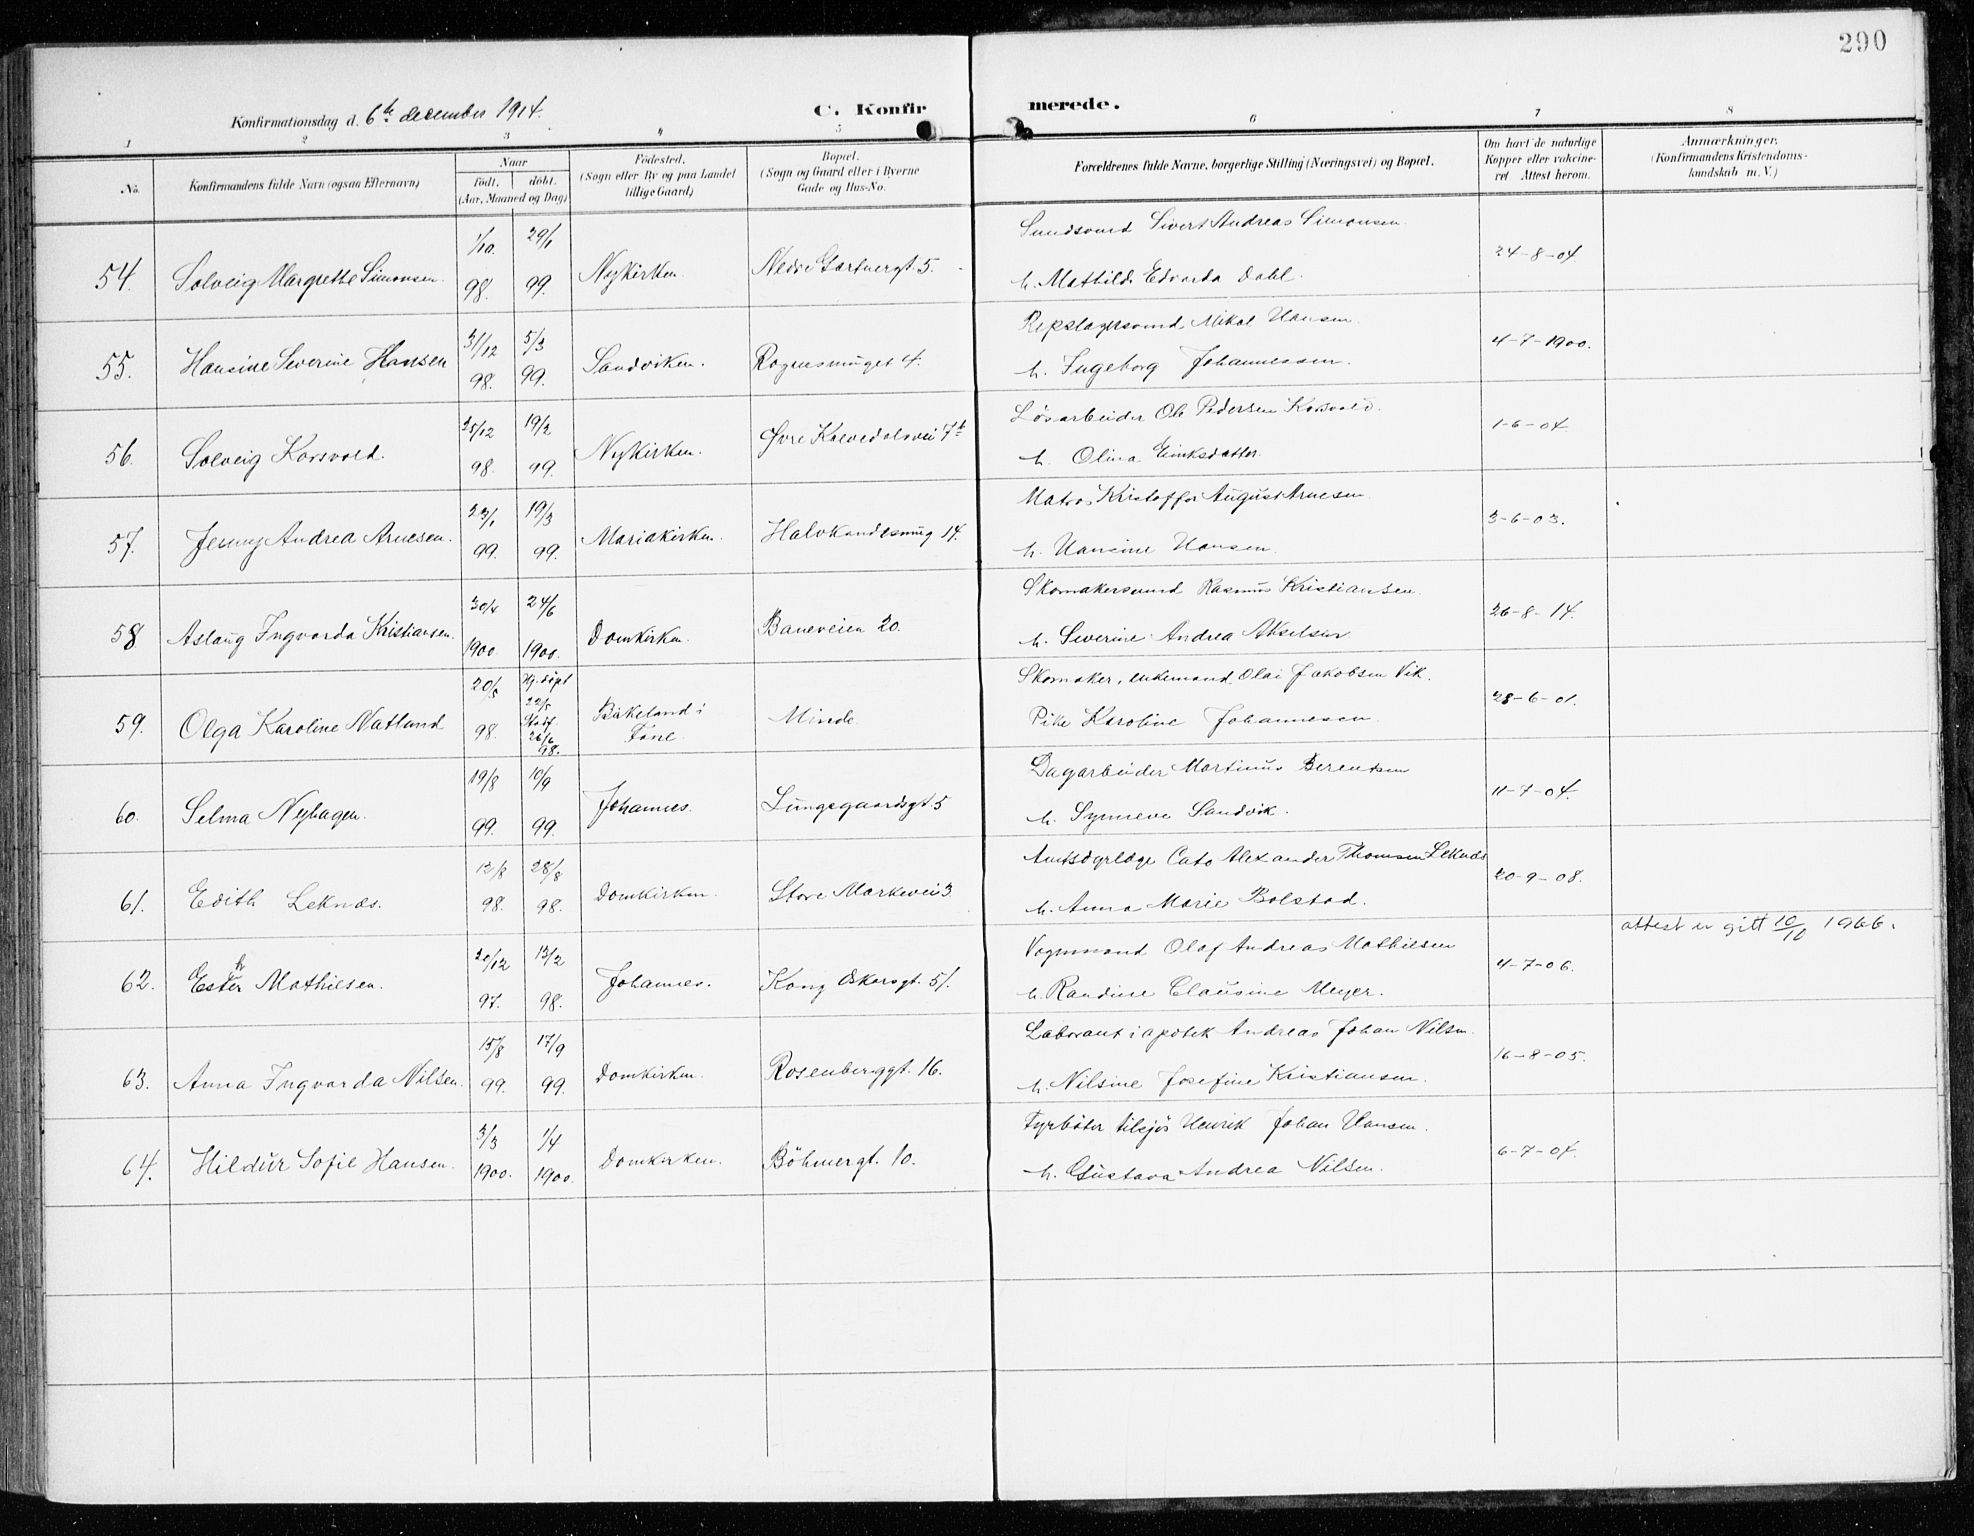 290
Konfirmationsdag d. 6te december 1914.
C. Konfirmerede.
1 2 3 4 5 6 7 8
No.
Konfirmandens fulde Navn (ogsaa Efternavn)
Naar
født. døbt.
(Aar, Maaned og Dag)
Fødested.
(Sogn eller By og paa Landet
tillige Gaard)
Bopæl.
(Sogn og Gaard eller i Byerne
Gade og Hus-No.
Forældrenes fulde Navne, borgerlige Stilling (Næringsvei) og Bopæl.
Om havt de naturlige
Kopper eller vakcine-
ret Attest herom.
Anmærkninger.
(Konfirmandens Kristendoms-
kundskab m. V.)
54. Solveig Margrethe Simonsen. 1/10. 98. 29/1 99. Nykirken. Nedre Gartnergt 5.
Sivert Andreas Simonsen.
h. Mathilde Edvarda Dahl. 24-8-04
55. Hansine Severine Hansen 31/12 98. 5/3 99. Sandviken. Rognesmuget 4.
Repslagersvend Mikal Hansen.
h. Ingeborg Johannessen. 4-7-1900.
56. Solveig Korsvold. 25/12 98. 19/2 99. Nykirken. Øvre Kalvedalsvei 7b
Løsarbeider Ole Pedersen Korsvold.
h. Olina Eiriksdatter. 1-6-04
57. Jenny Andrea Arnesen. 23/1 99. 19/3 99. Mariakirken. Halvkandesmug 14.
Matros Kristoffer August Arnesen.
h. Hansine Hansen. 3-6-03.
58. Aslaug Ingvarda Kristiansen. 30/4 1900. 24/6 1900. Domkirken. Baneveien 20.
Skomakersvend Rasmus Kristiansen.
h. Severine Andrea Akselsen 26-8-14.
59. Olga Karoline Natland 20/5 98. Hj. døpt 22/5 Stadf. 26/6 98. Bakeland i Minde.
Skomaker, enkemand Olai Jakobsen Vik.
Pike Karoline Johannesen. 28-6-01.
60. Selma Nyhagen. 19/8 99. 10/9 99. Johannes. Lungegaardsgt 5
Dagarbeider Martinus Berentsen
h. Synneve Sandvik. 11-7-04.
61. Edith Leknæs. 12/8 98. 28/8 98. Domkirken. Store Markevei 3
Amtsdyrlæge Cato Alexander Thomsen Leknæs
h. Anna Marie Bolstad. 20-9-08.
62. Esther Mathiesen. 20/12 97. 13/2 98. Johannes. Kong Oskarsgt. 51.
Vognmand Olaf Andreas Mathiesen
h. Randine Clausine Meyer. 4-7-06.
attest er gitt 10/10 1966.
63. Anna Ingvarda Nilsen. 15/8 99. 17/9 99. Domkirken. Rosenberggt. 16.
Laborant i apotek Andreas Johan Nilsen
h. Nilsine Josefine Kristiansen. 16-8-05.
64. Hildur Sofie Hansen. 3/3 1900. 1/4 1900. Domkirken. Böhmergt. 10.
Fyrbøter tilsjøs Henrik Johan Hansen.
h. Gustava Andrea Nilsen. 6-7-04.